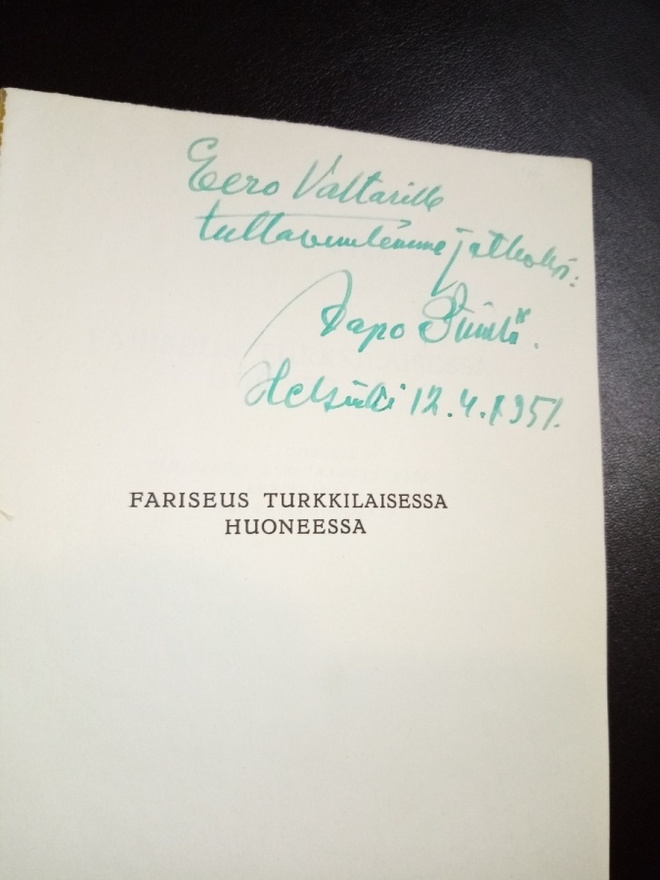 Eero Valtarille
tuttavuutemme jatkoksi:
Helsinki 12.4.1951.
FARISEUS TURKKILAISESSA
HUONEESSA